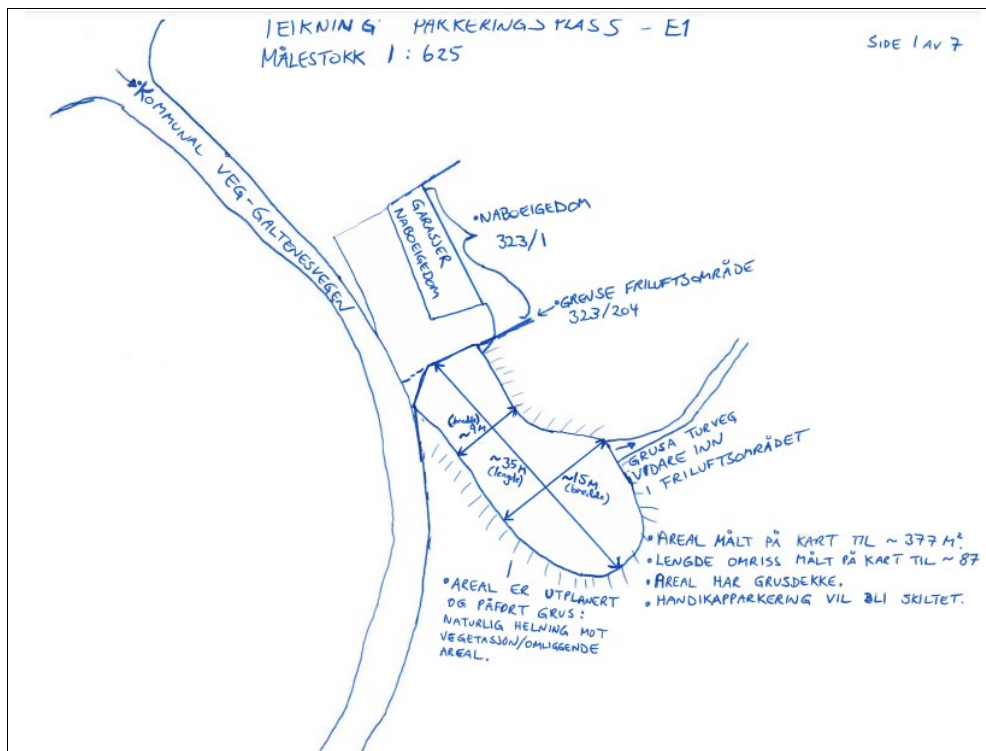 TEIKNING PARKERINGSPLASS - E1
MÅLESTOKK 1:625
SIDE 1 AV 7
KOMMUNAL VEG-GALTENESVEGEN
GARASJER
NABOEIGEDOM
•NABOEIGEDOM
323/1
•GRENSE FRILUFTSOMRÅDE
323/204
(bredde)
~9M
~35M
(lengde)
~15M
(bredde)
GRUSA TURVEG
VIDARE INN
I FRILUFTSOMRÅDET
•AREAL MÅLT PÅ KART TIL ~377 M².
•LENGDE OMRISS MÅLT PÅ KART TIL ~87
•AREAL HAR GRUSDEKKE.
•HANDIKAPPARKERING VIL BLI SKILTET.
•AREAL ER UTPLANERT
OG PÅFØRT GRUS:
NATURLIG HELNING MOT
VEGETASJON/OMLIGGENDE
AREAL.